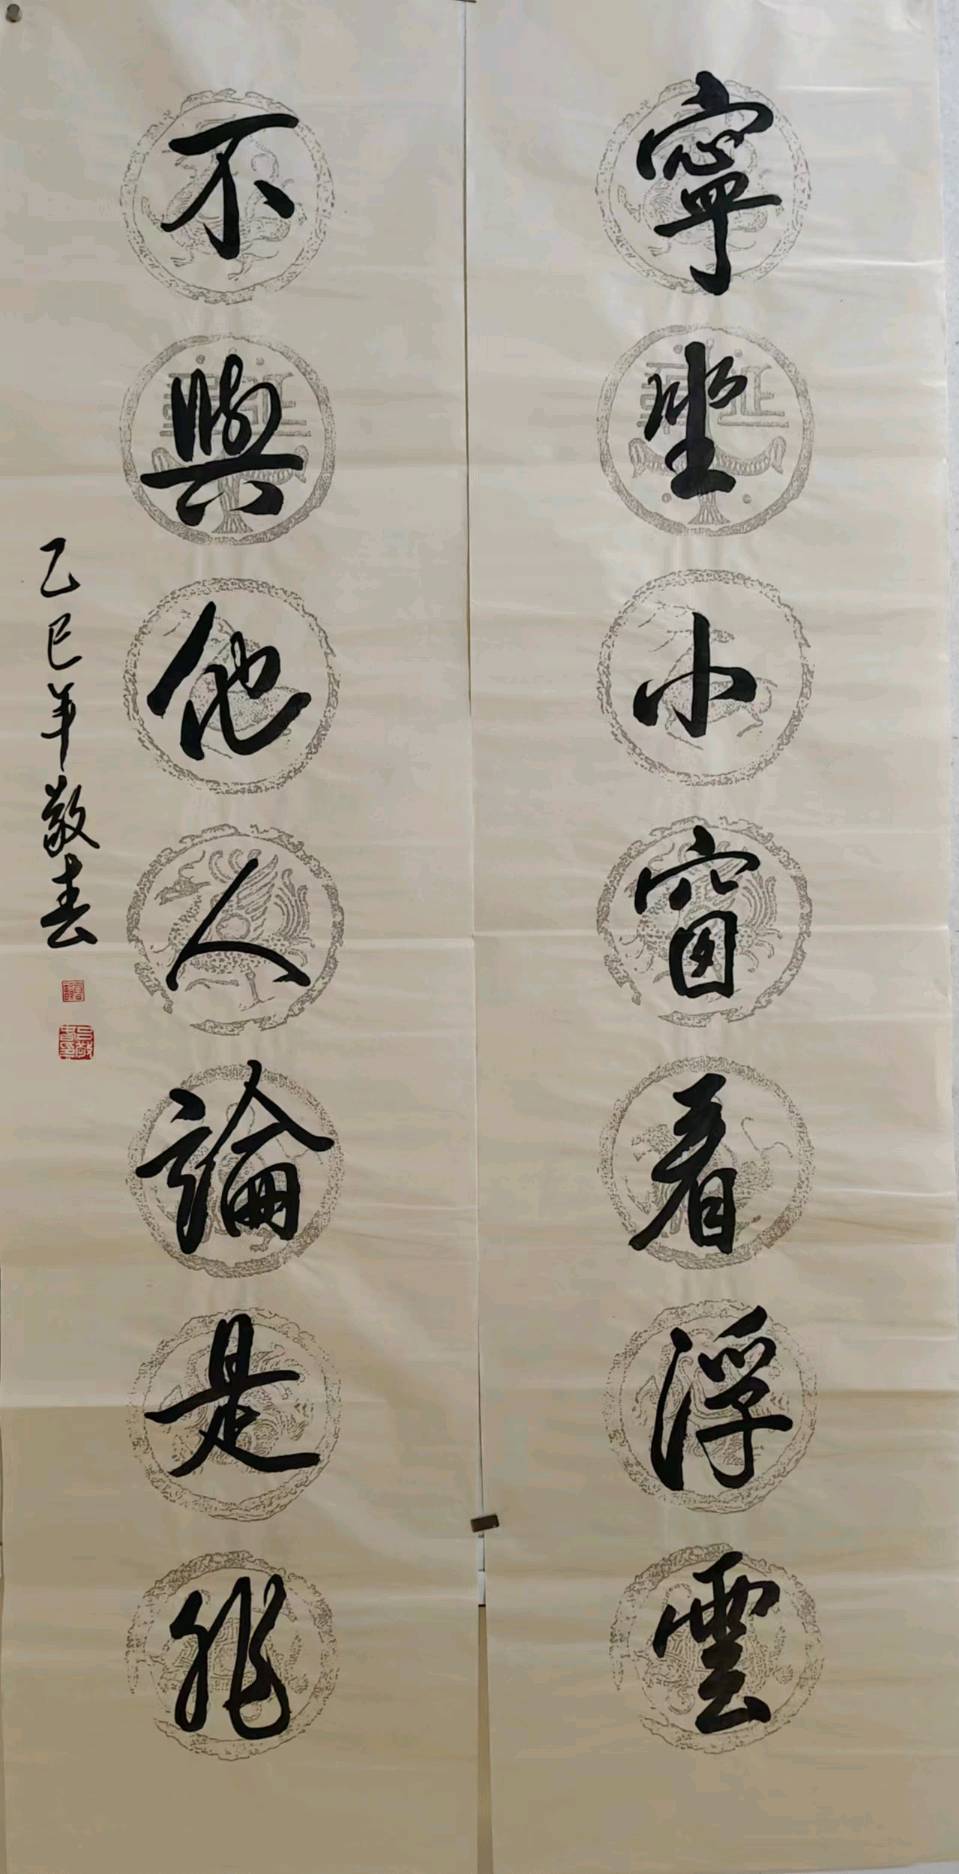 寧坐小窗看浮雲
不與他人論是非
乙巳年敬春